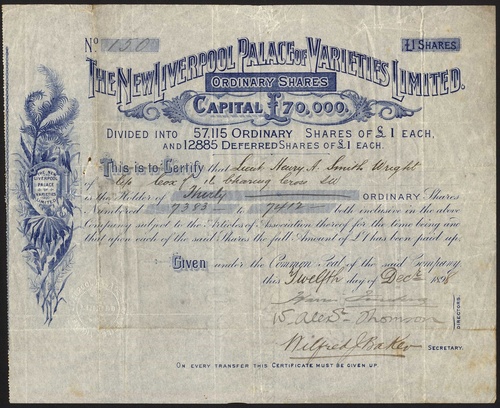 No 150
£1 SHARES
THE NEW LIVERPOOL PALACE OF VARIETIES LIMITED.
ORDINARY SHARES
CAPITAL £70,000.
DIVIDED INTO 57,115 ORDINARY SHARES OF £1 EACH,
AND 12885 DEFERRED SHARES OF £1 EACH.
This is to Certify that Lieut Henry A. Smith Wright
of c/o Cox & Co Charing Cross SW
is the Holder of Thirty ORDINARY Shares
Numbered 7383 to 7412 both inclusive in the above
Company subject to the Articles of Association thereof for the time being and
that upon each of the said Shares the full Amount of £1 has been paid up.
Given under the Common Seal of the said Company
this Twelfth day of Decr 1898
D. Alexr Thomson
DIRECTORS.
Wilfred J Baker SECRETARY.
ON EVERY TRANSFER THIS CERTIFICATE MUST BE GIVEN UP.
THE NEW
LIVERPOOL
PALACE
OF
VARIETIES
LIMITED